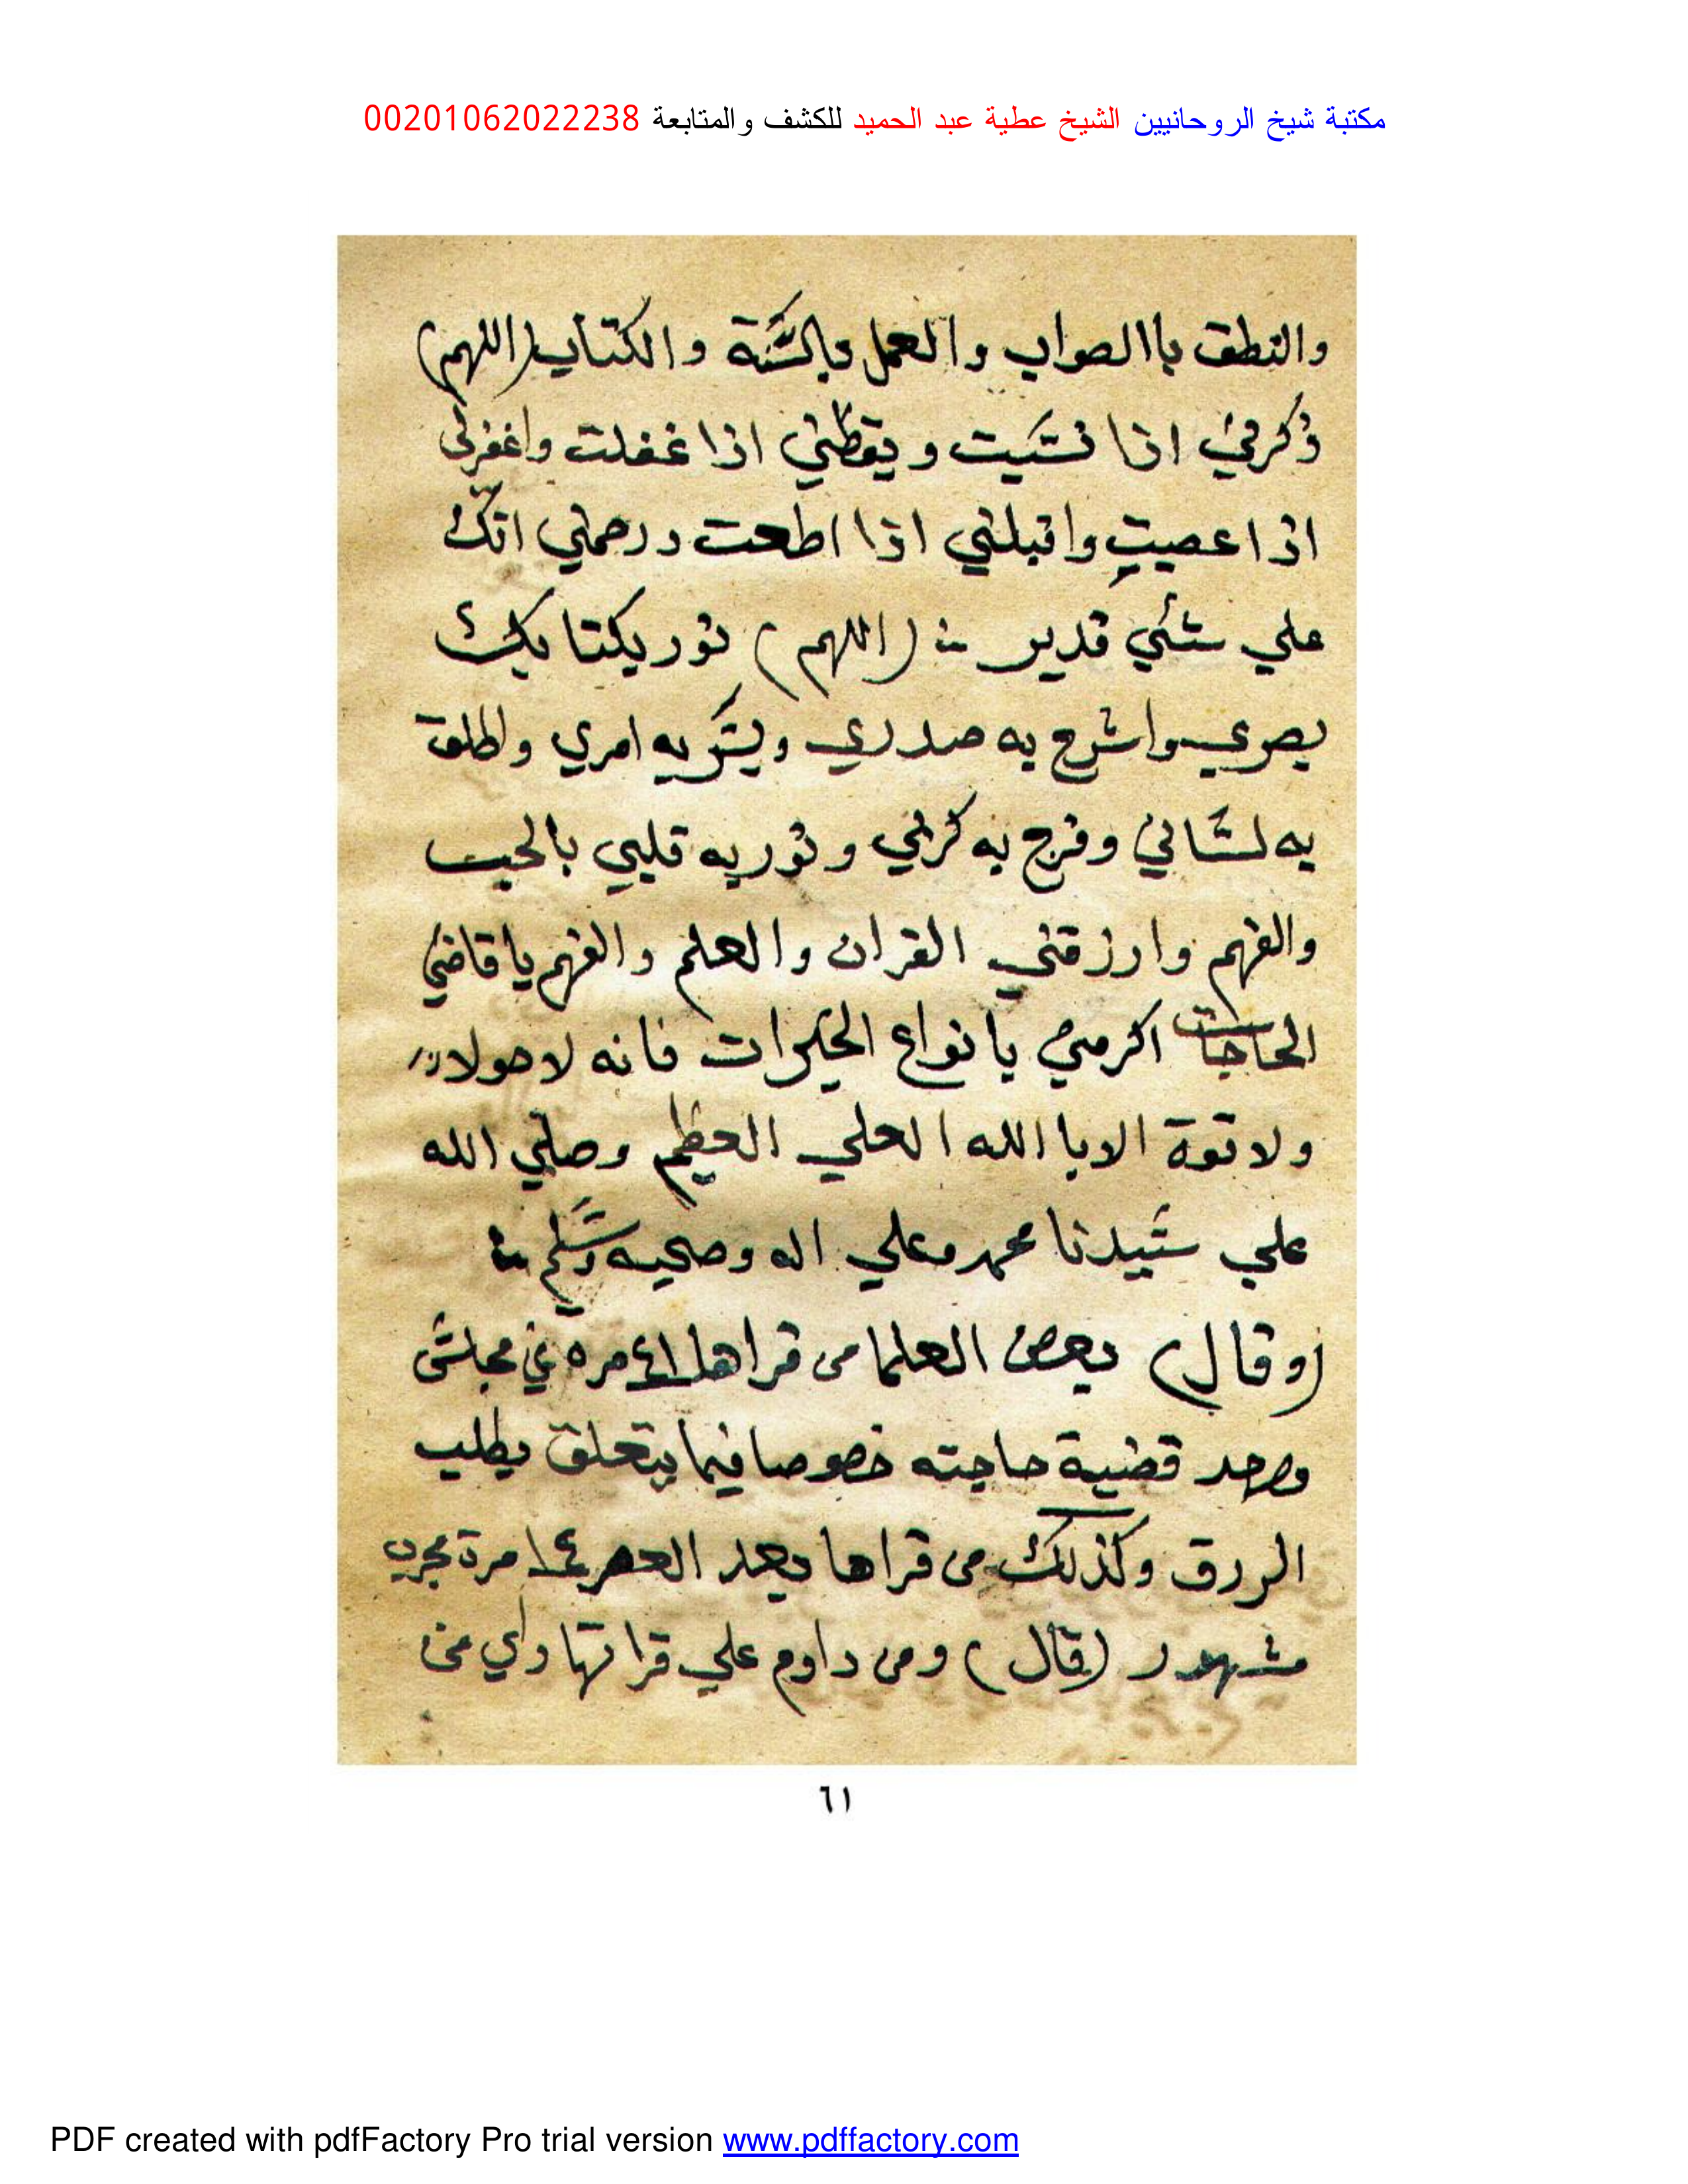 مكتبة شيخ الروحانيين الشيخ عطية عبد الحميد للكشف والمتابعة 00201062022238
والنطق باالصواب والعمل بالسنة والكتاب (اللهم)
ذكرني اذا نسيت ويقظني اذا غفلت واغفرلي
اذا عصيت واقبلني اذا اطعت ورحمني انك
علي شئي قدير (اللهم) نور بكتابك
بصري واشرح به صدري ويسر به امري واطلق
به لساني وفرج به كربي ونور به قلبي بالحب
والفهم وارزقني القران والعلم والفهم يا قاضي
الحاجات اكرمني يا نواع الخيرات فانه لا حولا
ولا قوة الا باالله العلي العظيم وصلي الله
علي سيدنا محمد وعلي اله وصحبه وسلم
(وقال) بعض العلما من قراها ٤١ مره في مجلس
وحد قضية حاجته خصوصا فيما يتعلق بطلب
الررق وكذلك من قراها بعد العصر ١٤ مرة مجرب
مشهور (قال) ومن داوم علي قراتها راي من
٦١
PDF created with pdfFactory Pro trial version www.pdffactory.com